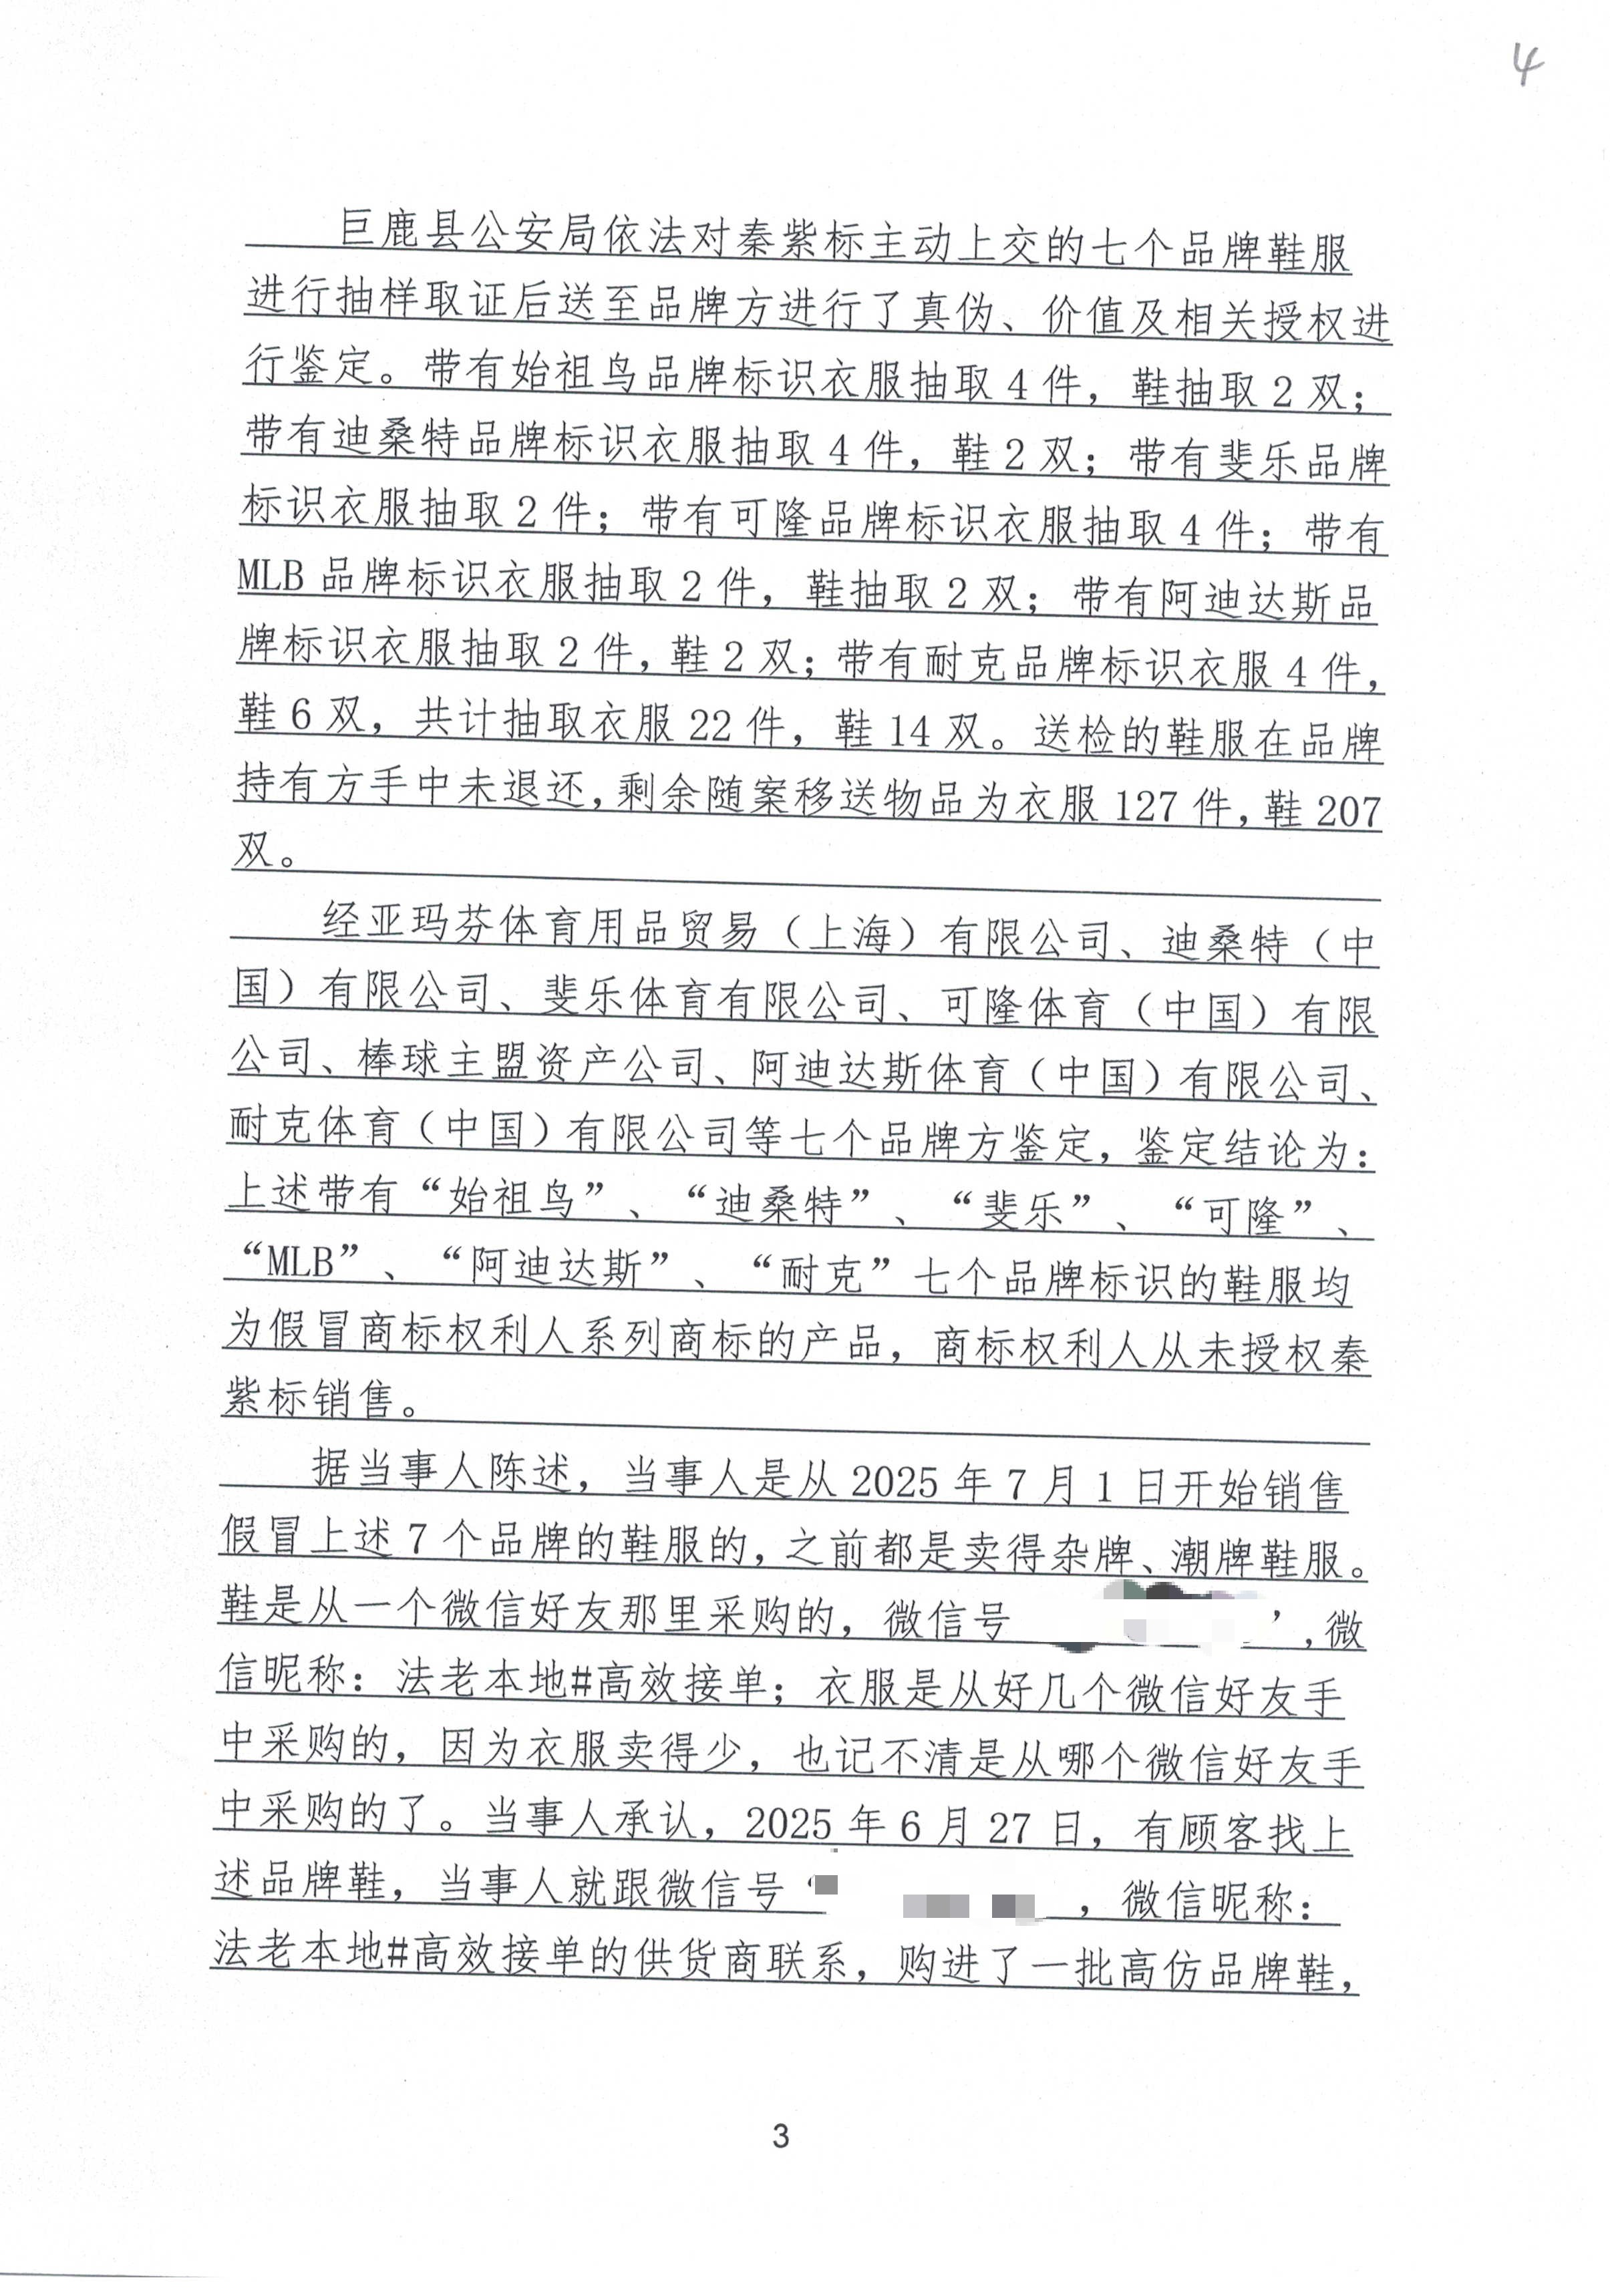 4
巨鹿县公安局依法对秦紫标主动上交的七个品牌鞋服
进行抽样取证后送至品牌方进行了真伪、价值及相关授权进
行鉴定。带有始祖鸟品牌标识衣服抽取4件，鞋抽取2双；
带有迪桑特品牌标识衣服抽取4件，鞋2双；带有斐乐品牌
标识衣服抽取2件；带有可隆品牌标识衣服抽取4件；带有
MLB品牌标识衣服抽取2件，鞋抽取2双；带有阿迪达斯品
牌标识衣服抽取2件，鞋2双；带有耐克品牌标识衣服4件，
鞋6双，共计抽取衣服22件，鞋14双。送检的鞋服在品牌
持有方手中未退还，剩余随案移送物品为衣服127件，鞋207
双。
经亚玛芬体育用品贸易（上海）有限公司、迪桑特（中
国）有限公司、斐乐体育有限公司、可隆体育（中国）有限
公司、棒球主盟资产公司、阿迪达斯体育（中国）有限公司、
耐克体育（中国）有限公司等七个品牌方鉴定，鉴定结论为：
上述带有“始祖鸟”、“迪桑特”、“斐乐”、“可隆”、
“MLB”、“阿迪达斯”、“耐克”七个品牌标识的鞋服均
为假冒商标权利人系列商标的产品，商标权利人从未授权秦
紫标销售。
据当事人陈述，当事人是从2025年7月1日开始销售
假冒上述7个品牌的鞋服的，之前都是卖得杂牌、潮牌鞋服。
鞋是从一个微信好友那里采购的，微信号 ’，微
信昵称：法老本地#高效接单；衣服是从好几个微信好友手
中采购的，因为衣服卖得少，也记不清是从哪个微信好友手
中采购的了。当事人承认，2025年6月27日，有顾客找上
述品牌鞋，当事人就跟微信号‘ ，微信昵称：
法老本地#高效接单的供货商联系，购进了一批高仿品牌鞋，
3